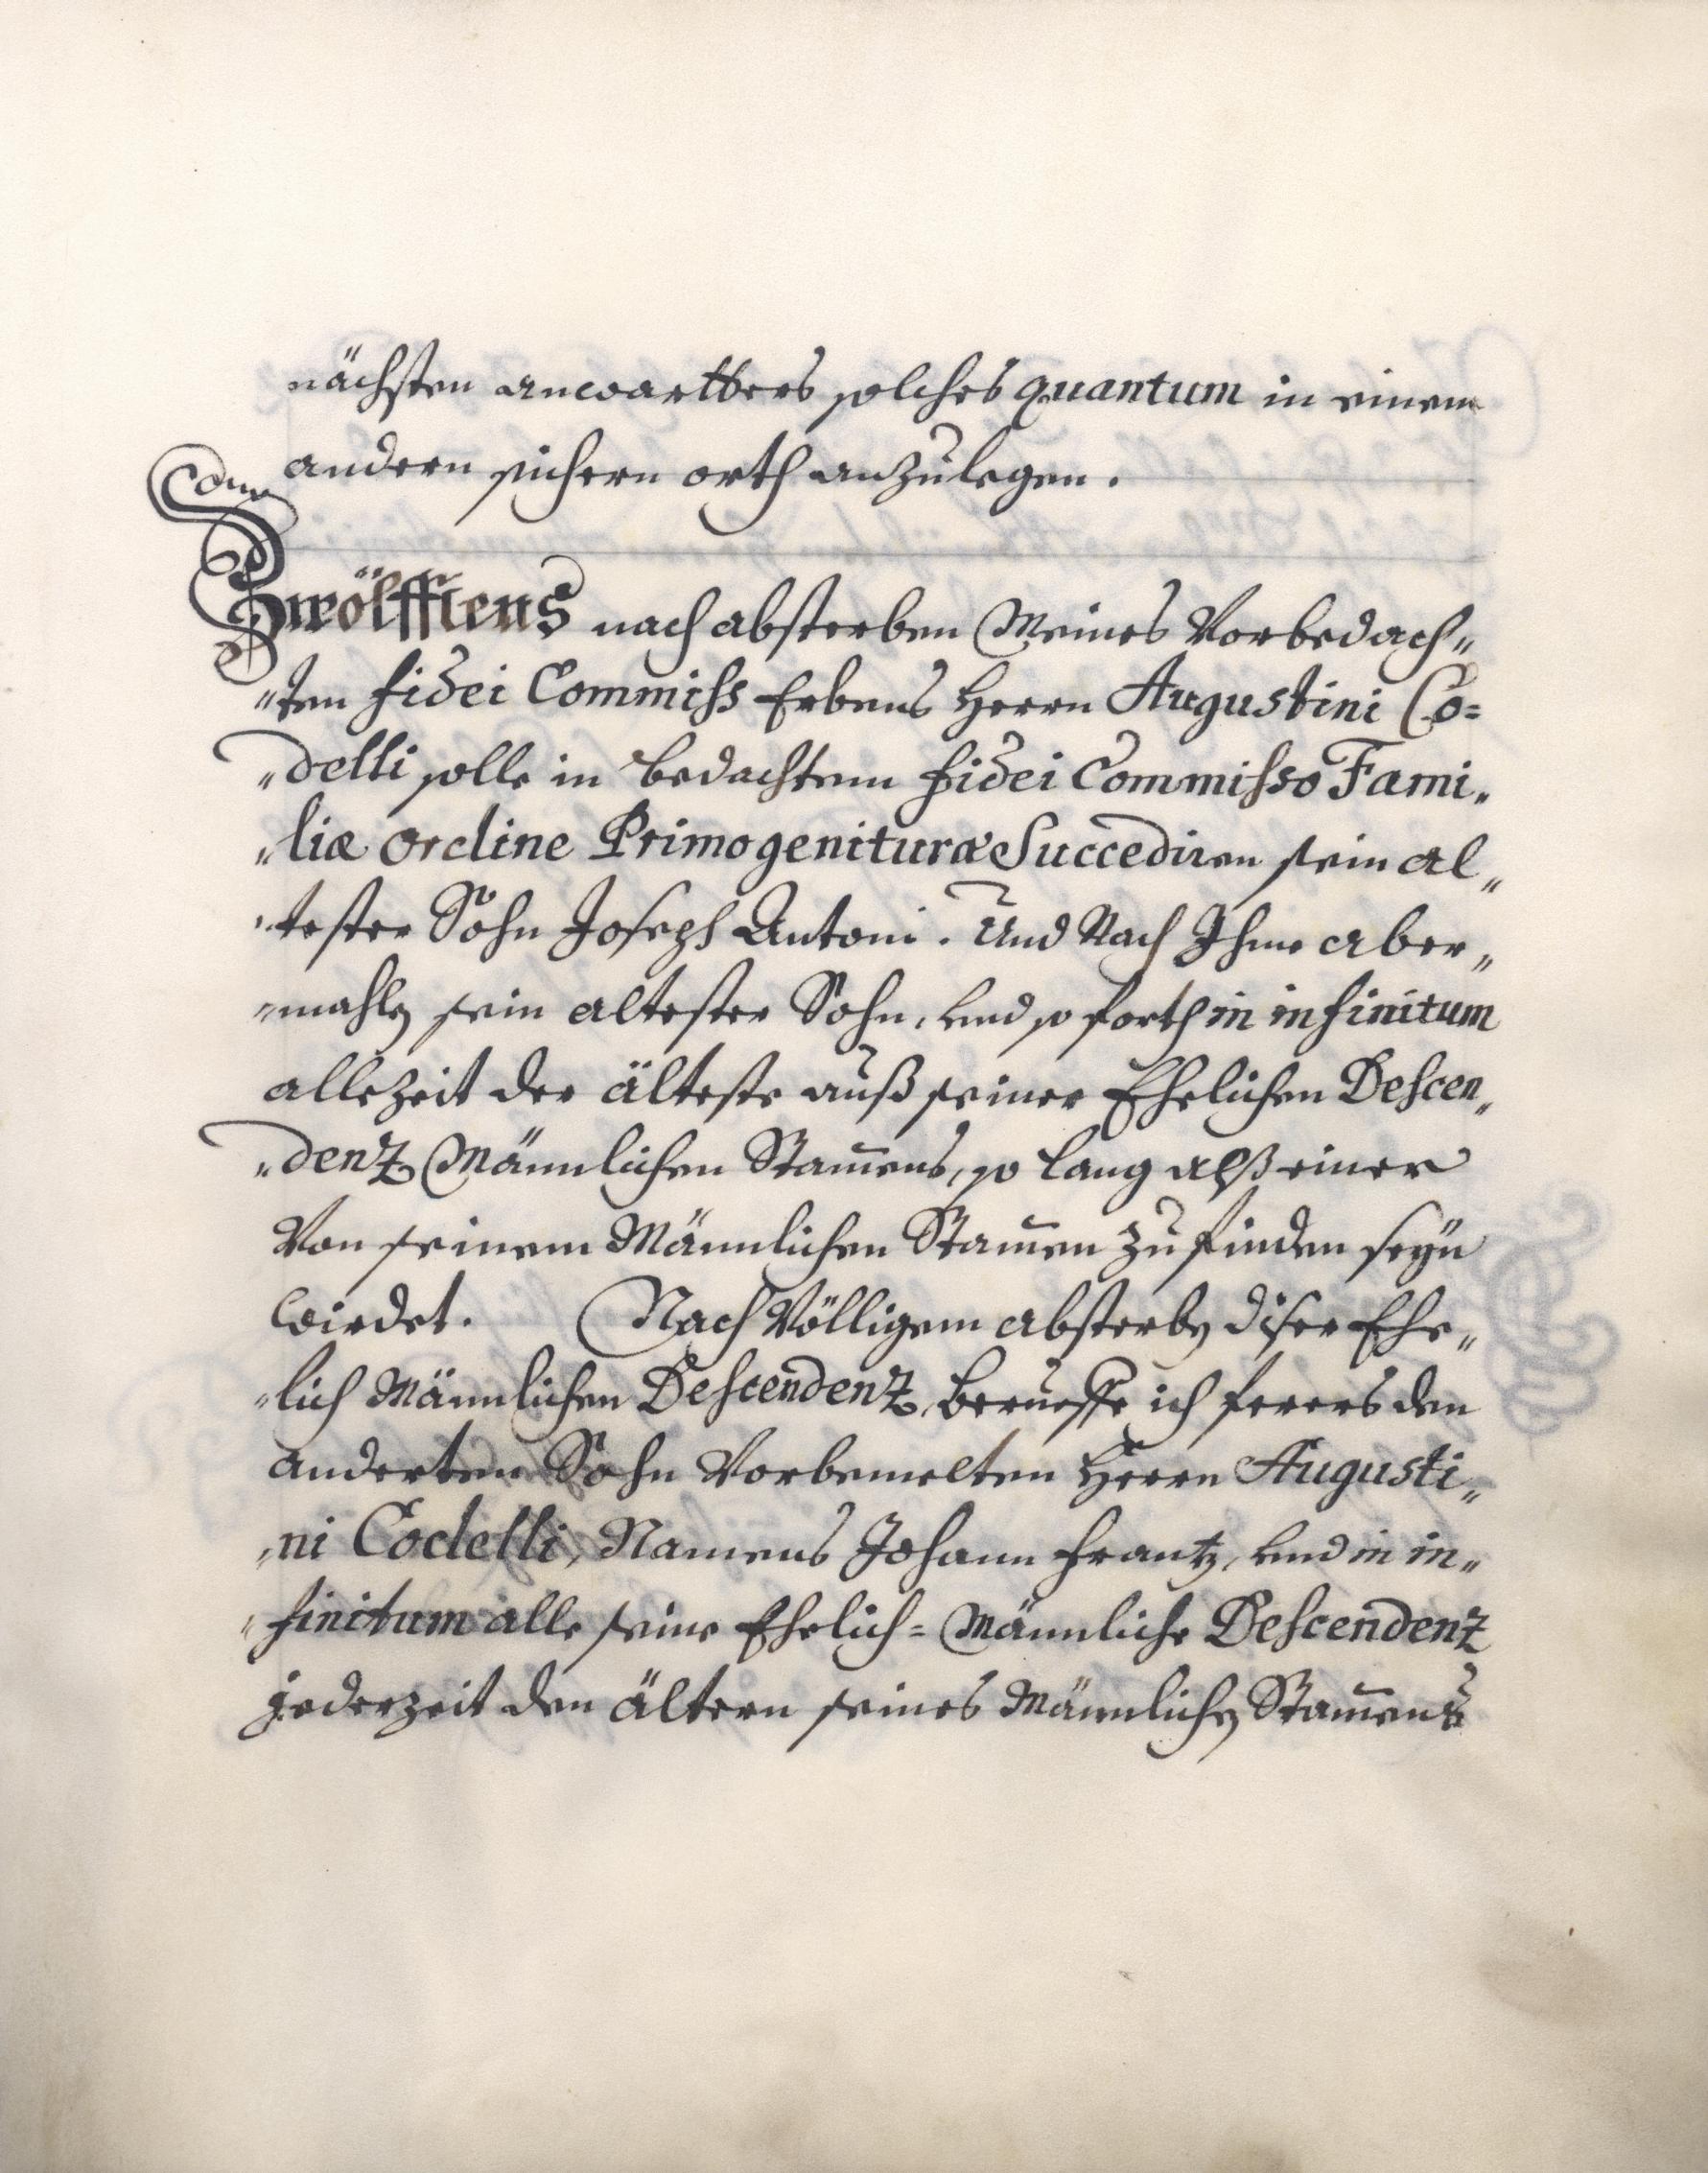 nächsten anwartters solches quantum in einem
andern sichern orth anzulegen.
Zwölfftens nach absterben Meines Vorbedach„
„ten fidei Commiss Erbens Herrn Augustini Co=
„delli solle in bedachtem fidei Commisso Fami„
„liæ ordine Primogenituræ Succediren sein al„
„tester Sohn Joseph Antoni. Und Nach Ihme aber„
„mahlen sein altester Sohn, und so forth in infinitum
allezeit der älteste auß seiner Ehelichen Descen„
„dentz Männlichen Stam̄ens, so lang alß einer
Von seinem Männlichen Stam̄en zu finden seÿn
wirdet. Nach Völligem absterben diser Ehe„
„lich Männlichen Descendentz, berueffe ich ferers den
anderten Sohn Vorbemelten Herrn Augusti„
„ni Codelli, Namens Johann Frantz, und in in„
„finitum alle seine Ehelich= Männliche Descendentz
jederzeit den ältern seines Männlichen Stam̄ens